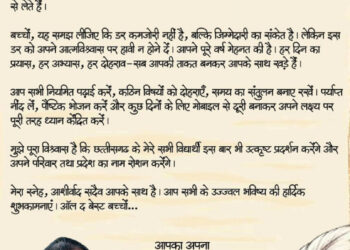 से लेते हैं।
बच्चों, यह समझ लीजिए कि डर कमजोरी नहीं है, बल्कि जिम्मेदारी का संकेत है। लेकिन इस
डर को अपने आत्मविश्वास पर हावी न होने दें। आपने पूरे वर्ष मेहनत की है। हर दिन का
प्रयास, हर अभ्यास, हर दोहराव-सब आपकी ताकत बनकर आपके साथ खड़े हैं।
आप सभी नियमित पढ़ाई करें, कठिन विषयों को दोहराएँ, समय का संतुलन बनाए रखें। पर्याप्त
नींद लें, पौष्टिक भोजन करें और कुछ दिनों के लिए मोबाइल से दूरी बनाकर अपने लक्ष्य पर
पूरी तरह ध्यान केंद्रित करें।
मुझे पूरा विश्वास है कि छत्तीसगढ़ के मेरे सभी विद्यार्थी इस बार भी उत्कृष्ट प्रदर्शन करेंगे और
अपने परिवार तथा प्रदेश का नाम रोशन करेंगे।
मेरा स्नेह, आशीर्वाद सदैव आपके साथ है। आप सभी के उज्ज्वल भविष्य की हार्दिक
शुभकामनाएं। ऑल द बेस्ट बच्चों...
आपका अपना